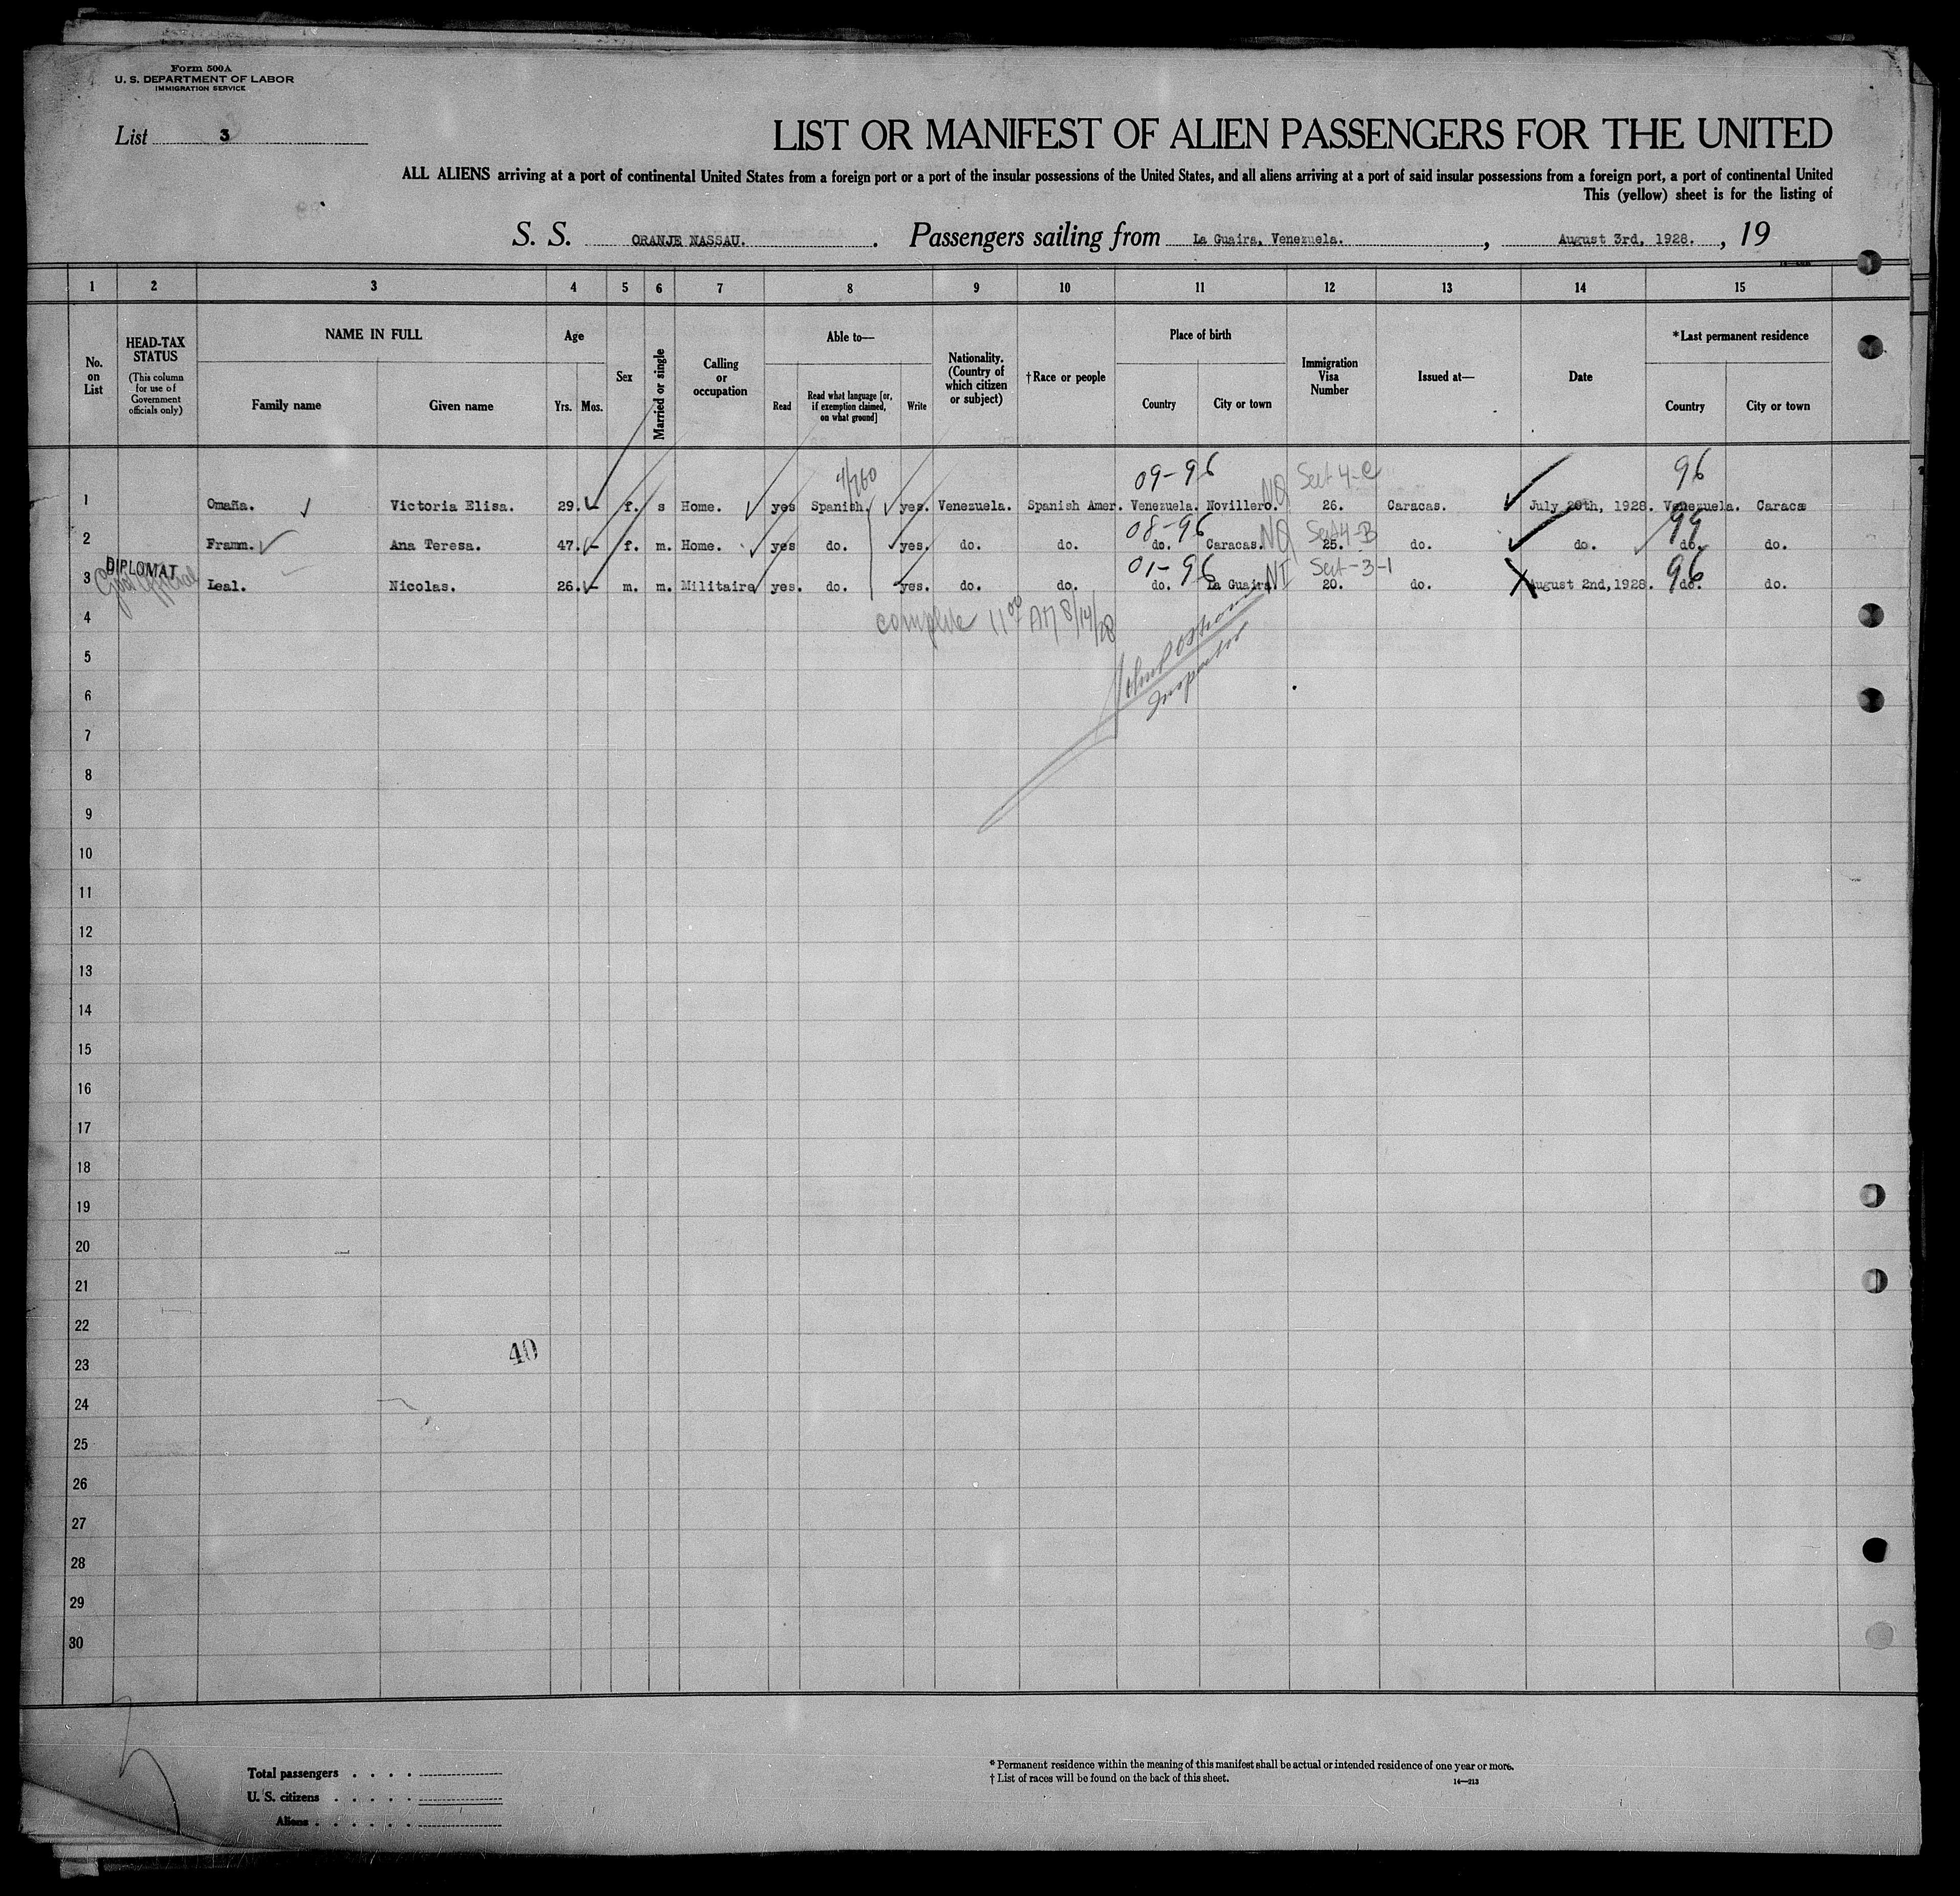 Form 500A
U. S. DEPARTMENT OF LABOR
IMMIGRATION SERVICE
List 3
LIST OR MANIFEST OF ALIEN PASSENGERS FOR THE UNITED
ALL ALIENS arriving at a port of continental United States from a foreign port or a port of the insular possessions of the United States, and all aliens arriving at a port of said insular possessions from a foreign port, a port of continental United
This (yellow) sheet is for the listing of
S. S. ORANJE NASSAU. . Passengers sailing from La Guaira, Venezuela. , August 3rd, 1928. , 19
1 2 3 4 5 6 7 8 9 10 11 12 13 14 15
No. on List
HEAD-TAX STATUS
(This column for use of Government officials only)
NAME IN FULL
Family name Given name
Age
Yrs. Mos.
Sex
Married or single
Calling or occupation
Able to—
Read
Read what language [or, if exemption claimed, on what ground]
Write
Nationality. (Country of which citizen or subject)
†Race or people
Place of birth
Country City or town
Immigration Visa Number
Issued at—
Date
*Last permanent residence
Country City or town
4/760 09-96 NQ Sect 4-C 96
1 Omaña. Victoria Elisa. 29. - f. s Home. yes Spanish. yes. Venezuela. Spanish Amer. Venezuela. Novillero. 26. Caracas. July 28th, 1928. Venezuela. Caracas
08-96 NQ Sect 4-B 99
2 Framm. Ana Teresa. 47. - f. m. Home. yes do. yes. do. do. do. Caracas. 25. do. do. do. do.
DIPLOMAT 01-96 NI Sect-3-1 96
3 Leal. Nicolas. 26. - m. m. Militaire yes. do. yes. do. do. do. La Guaira 20. do. August 2nd, 1928. do. do.
Govt official
complete 11 00 AM 8/14/28
Inspector
4
5
6
7
8
9
10
11
12
13
14
15
16
17
18
19
20
21
22
23 40
24
25
26
27
28
29
30
Total passengers . . . .
U. S. citizens . . . . .
Aliens . . . . . .
* Permanent residence within the meaning of this manifest shall be actual or intended residence of one year or more.
† List of races will be found on the back of this sheet.
14—213